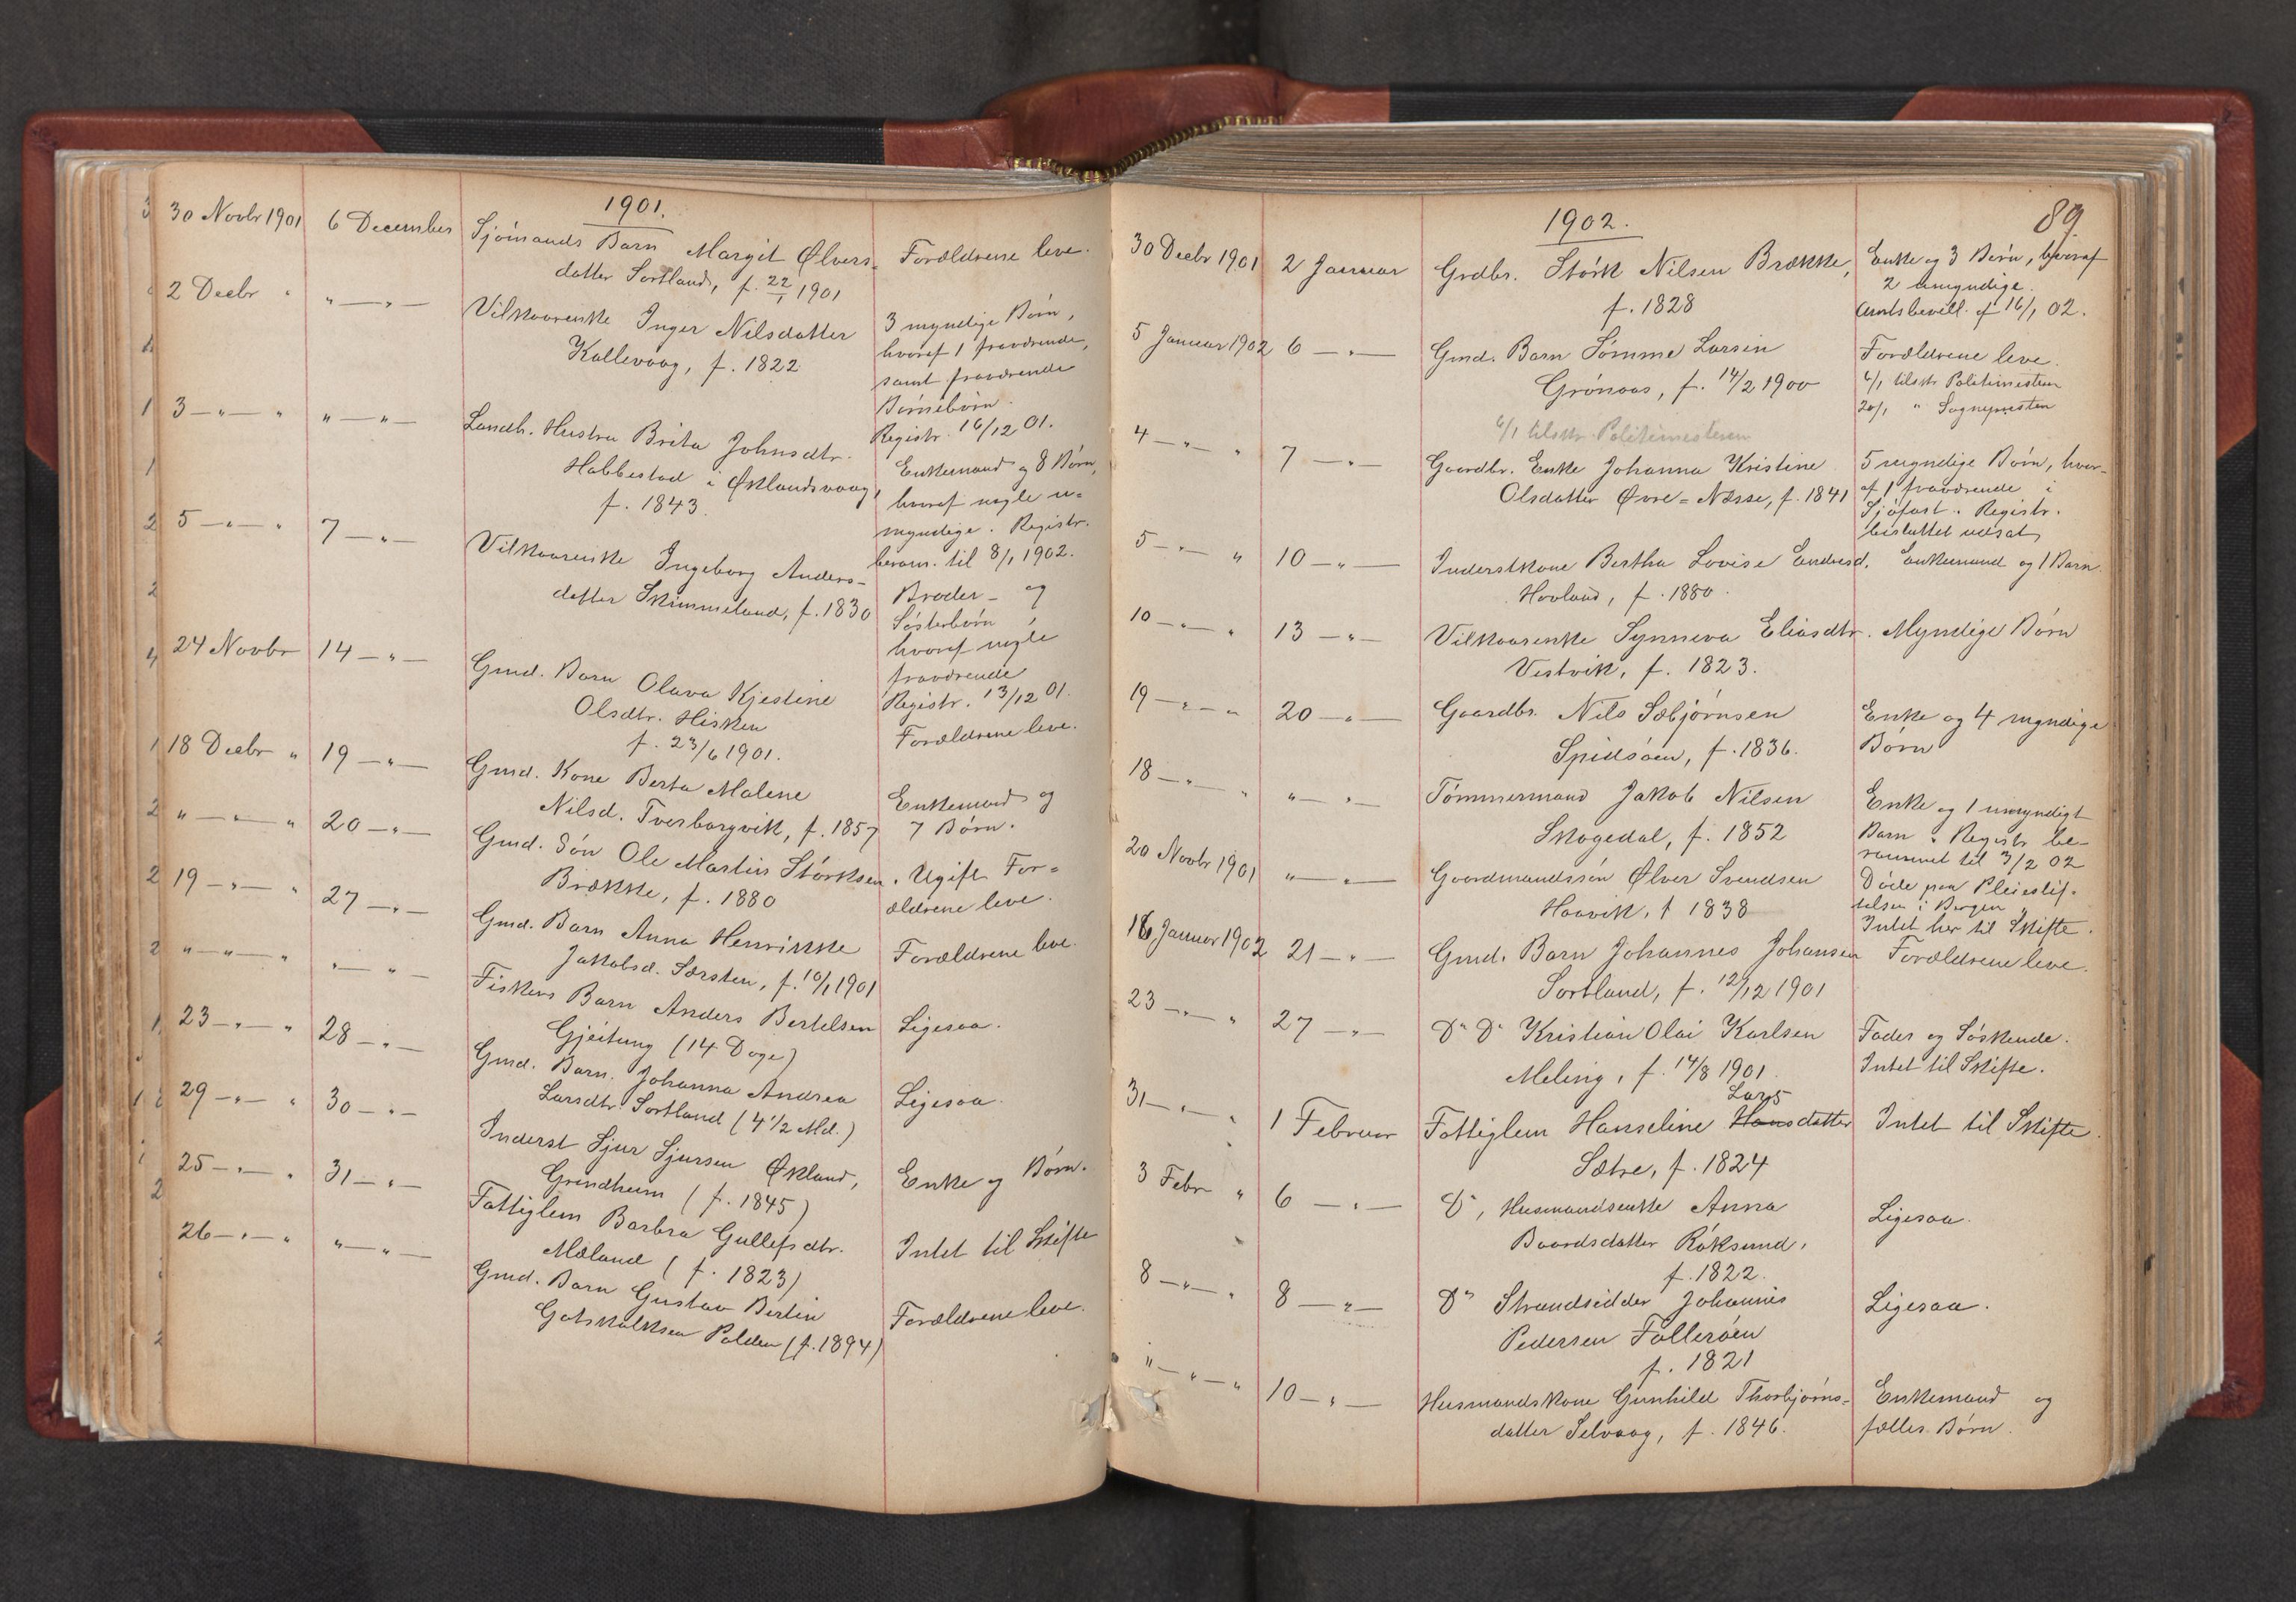 1901.
30 Novbr 1901 6 December Sjömands Barn Margit Ølvers- Forældrene leve.
datter Sortland, f. 22/1 1901
2 Decbr " " — " — Vilkaarenke Inger Nilsdatter 3 myndige Börn,
Kallevaag, f. 1822 hvoraf 1 fraværende,
samt fraværende
Börnebörn.
Registr. 16/12 01.
3 — " — " " — " — Landh. Hustru Brita Johnsdtr. Enkemand og 8 Börn,
Habbestad i Øklandsvaag, hvoraf nogle u-
f. 1843. myndige. Registr.
beram. til 8/1 1902.
5 — " — " 7 — " — Vilkaarenke Ingeborg Anders- Broder- og
datter Skimmeland, f. 1830 Søsterbörn,
hvoraf nogle
fraværende
Registr. 13/12 01.
24 Novbr 14 — " — Gmd. Barn Olava Kjestine Forældrene leve.
Olsdtr. Hisken
f. 23/6 1901.
18 Decbr " 19 — " — Gmd. Kone Berta Malene Enkemand og
Nilsd. Tverborgvik, f. 1857 7 Börn.
" — " — " 20 — " — Gmd. Sön Ole Martin Störksen. Ugift For-
Brække, f. 1880 ældrene leve.
19 — " — " 27 — " — Gmd. Barn Anna Henrikke Forældrene leve.
Jakobsd. Særsten, f. 10/1 1901
" — " — " " — " — Fiskers Barn Anders Bertelsen Ligesaa.
Gjeitung (14 Dage)
23 — " — " 28 — " — Gmd. Barn. Johanna Andrea Ligesaa.
Larsdtr. Sortland (4 1/2 Md.)
29 — " — " 30 — " — Inderst Sjur Sjursen Økland, Enke og Börn.
Grindheim (f. 1845)
25 — " — " 31 — " — Fattiglem Barbra Gullefsdtr. Intet til Skifte
Mæland (f. 1823)
26 — " — " " — " — Gmd. Barn Gustav Bertin Forældrene leve.
Gotskalksen Polden (f. 1894)
1902. 89
30 Decbr 1901 2 Januar Grdbr. Störk Nilsen Brække, Enke og 3 Börn, hvoraf
f. 1828 2 umyndige.
Amtsbevill. af 16/1 02.
5 Januar 1902 6 — " — Gmd. Barn Sömme Larsen Forældrene leve.
Grönaas, f. 14/2 1900 6/1 tilskr. Politimesteren
20/1 " Sognepresten
6/1 tilskr. Politimesteren
4 — " — " 7 — " — Gaardbr. Enke Johanna Kristine 5 myndige Börn, hvor-
Olsdatter Øvre-Næsse, f. 1841 af 1 fraværende i
Sjöfart. Registr.
besluttet udsat
5 — " — " 10 — " — Inderstkone Bertha Lovise Endresd. Enkemand og 1 Barn.
Hovland, f. 1880.
10 — " — " 13 — " — Vilkaarenke Synneva Eliasdtr. Myndige Börn
Vestvik, f. 1823.
19 — " — " 20 — " — Gaardbr. Nils Sæbjörnsen Enke og 4 myndige
Spidsöen, f. 1836. Börn
18 — " — " " — " — Tömmermand Jakob Nilsen Enke og 1 umyndigt
Skogedal, f. 1852 Barn. Registr. be-
rammet til 3/2 02
20 Novbr 1901 " — " — Gaardmandssön Ølver Svendsen Döde paa Pleiestif-
Haavik, f 1838 telsen i Bergen
Intet her til Skifte.
16 Januar 1902 21 — " — Gmd. Barn Johannes Johansen Forældrene leve.
Sortland, f. 12/12 1901
23 — " — " 27 — " — Do Do Kristian Olai Karlsen Fader og Söskende.
Meling, f. 14/8 1901. Intet til Skifte.
Lars
31 — " — " 1 Februar Fattiglem Hanseline Hansdatter Intet til Skifte.
Sætre, f. 1824
3 Febr " 6 — " — Do, Husmandsenke Anna Ligesaa.
Baardsdatter Röksund,
f. 1822.
8 — " — " 8 — " — Do Strandsidder Johannes Ligesaa.
Pedersen Folleröen
f. 1821
" — " — " 10 — " — Husmandskone Gunhild Thorbjörns- Enkemand og
datter Selvaag, f. 1846. fælles Börn.